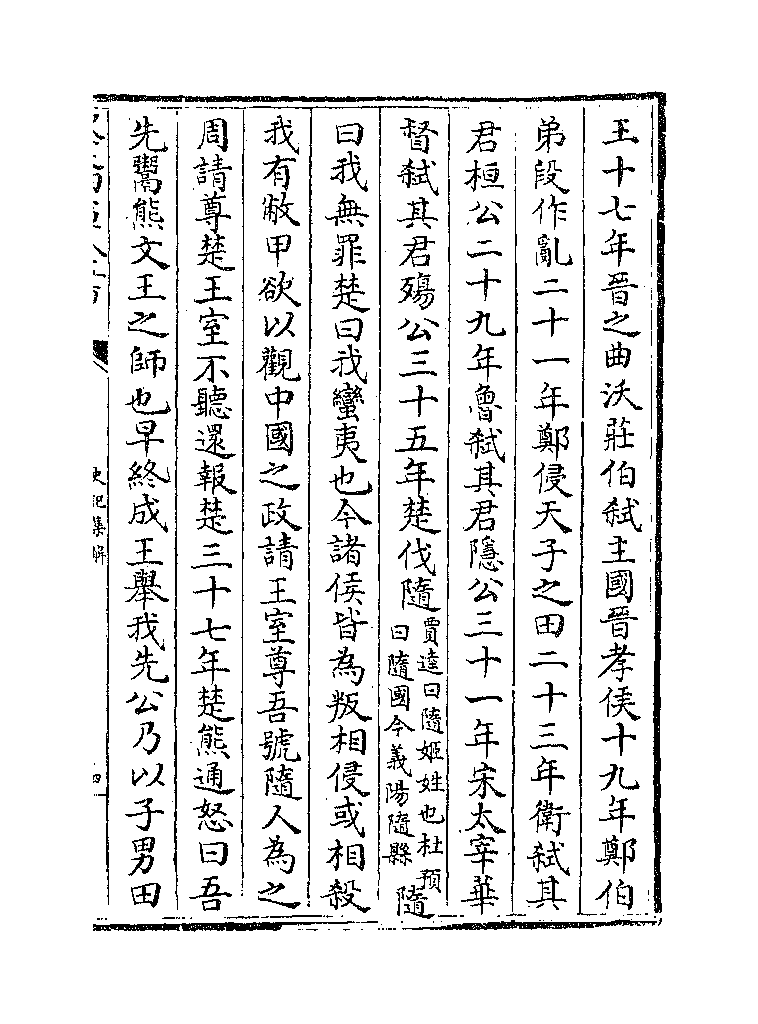 王十七年晉之曲沃莊伯弑主國晉孝侯十九年鄭伯
弟段作亂二十一年鄭侵天子之田二十三年衛弑其
君桓公二十九年魯弑其君隱公三十一年宋太宰華
督弑其君殤公三十五年楚伐隨賈逵曰隨姬姓也杜預曰隨國今義陽隨縣隨
曰我無罪楚曰我蠻夷也今諸侯皆為叛相侵或相殺
我有敝甲欲以觀中國之政請王室尊吾號隨人為之
周請尊楚王室不聽還報楚三十七年楚熊通怒曰吾
先鬻熊文王之師也早終成王舉我先公乃以子男田
史記集解
四